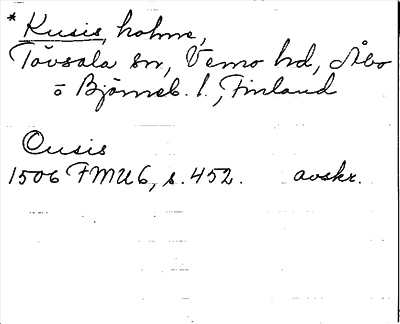 * Kusis, holme,
Tövsala sn, Vemo hd, Åbo
o Björneb. l., Finland
Cusis
1506 FMU6, s. 452. avskr.